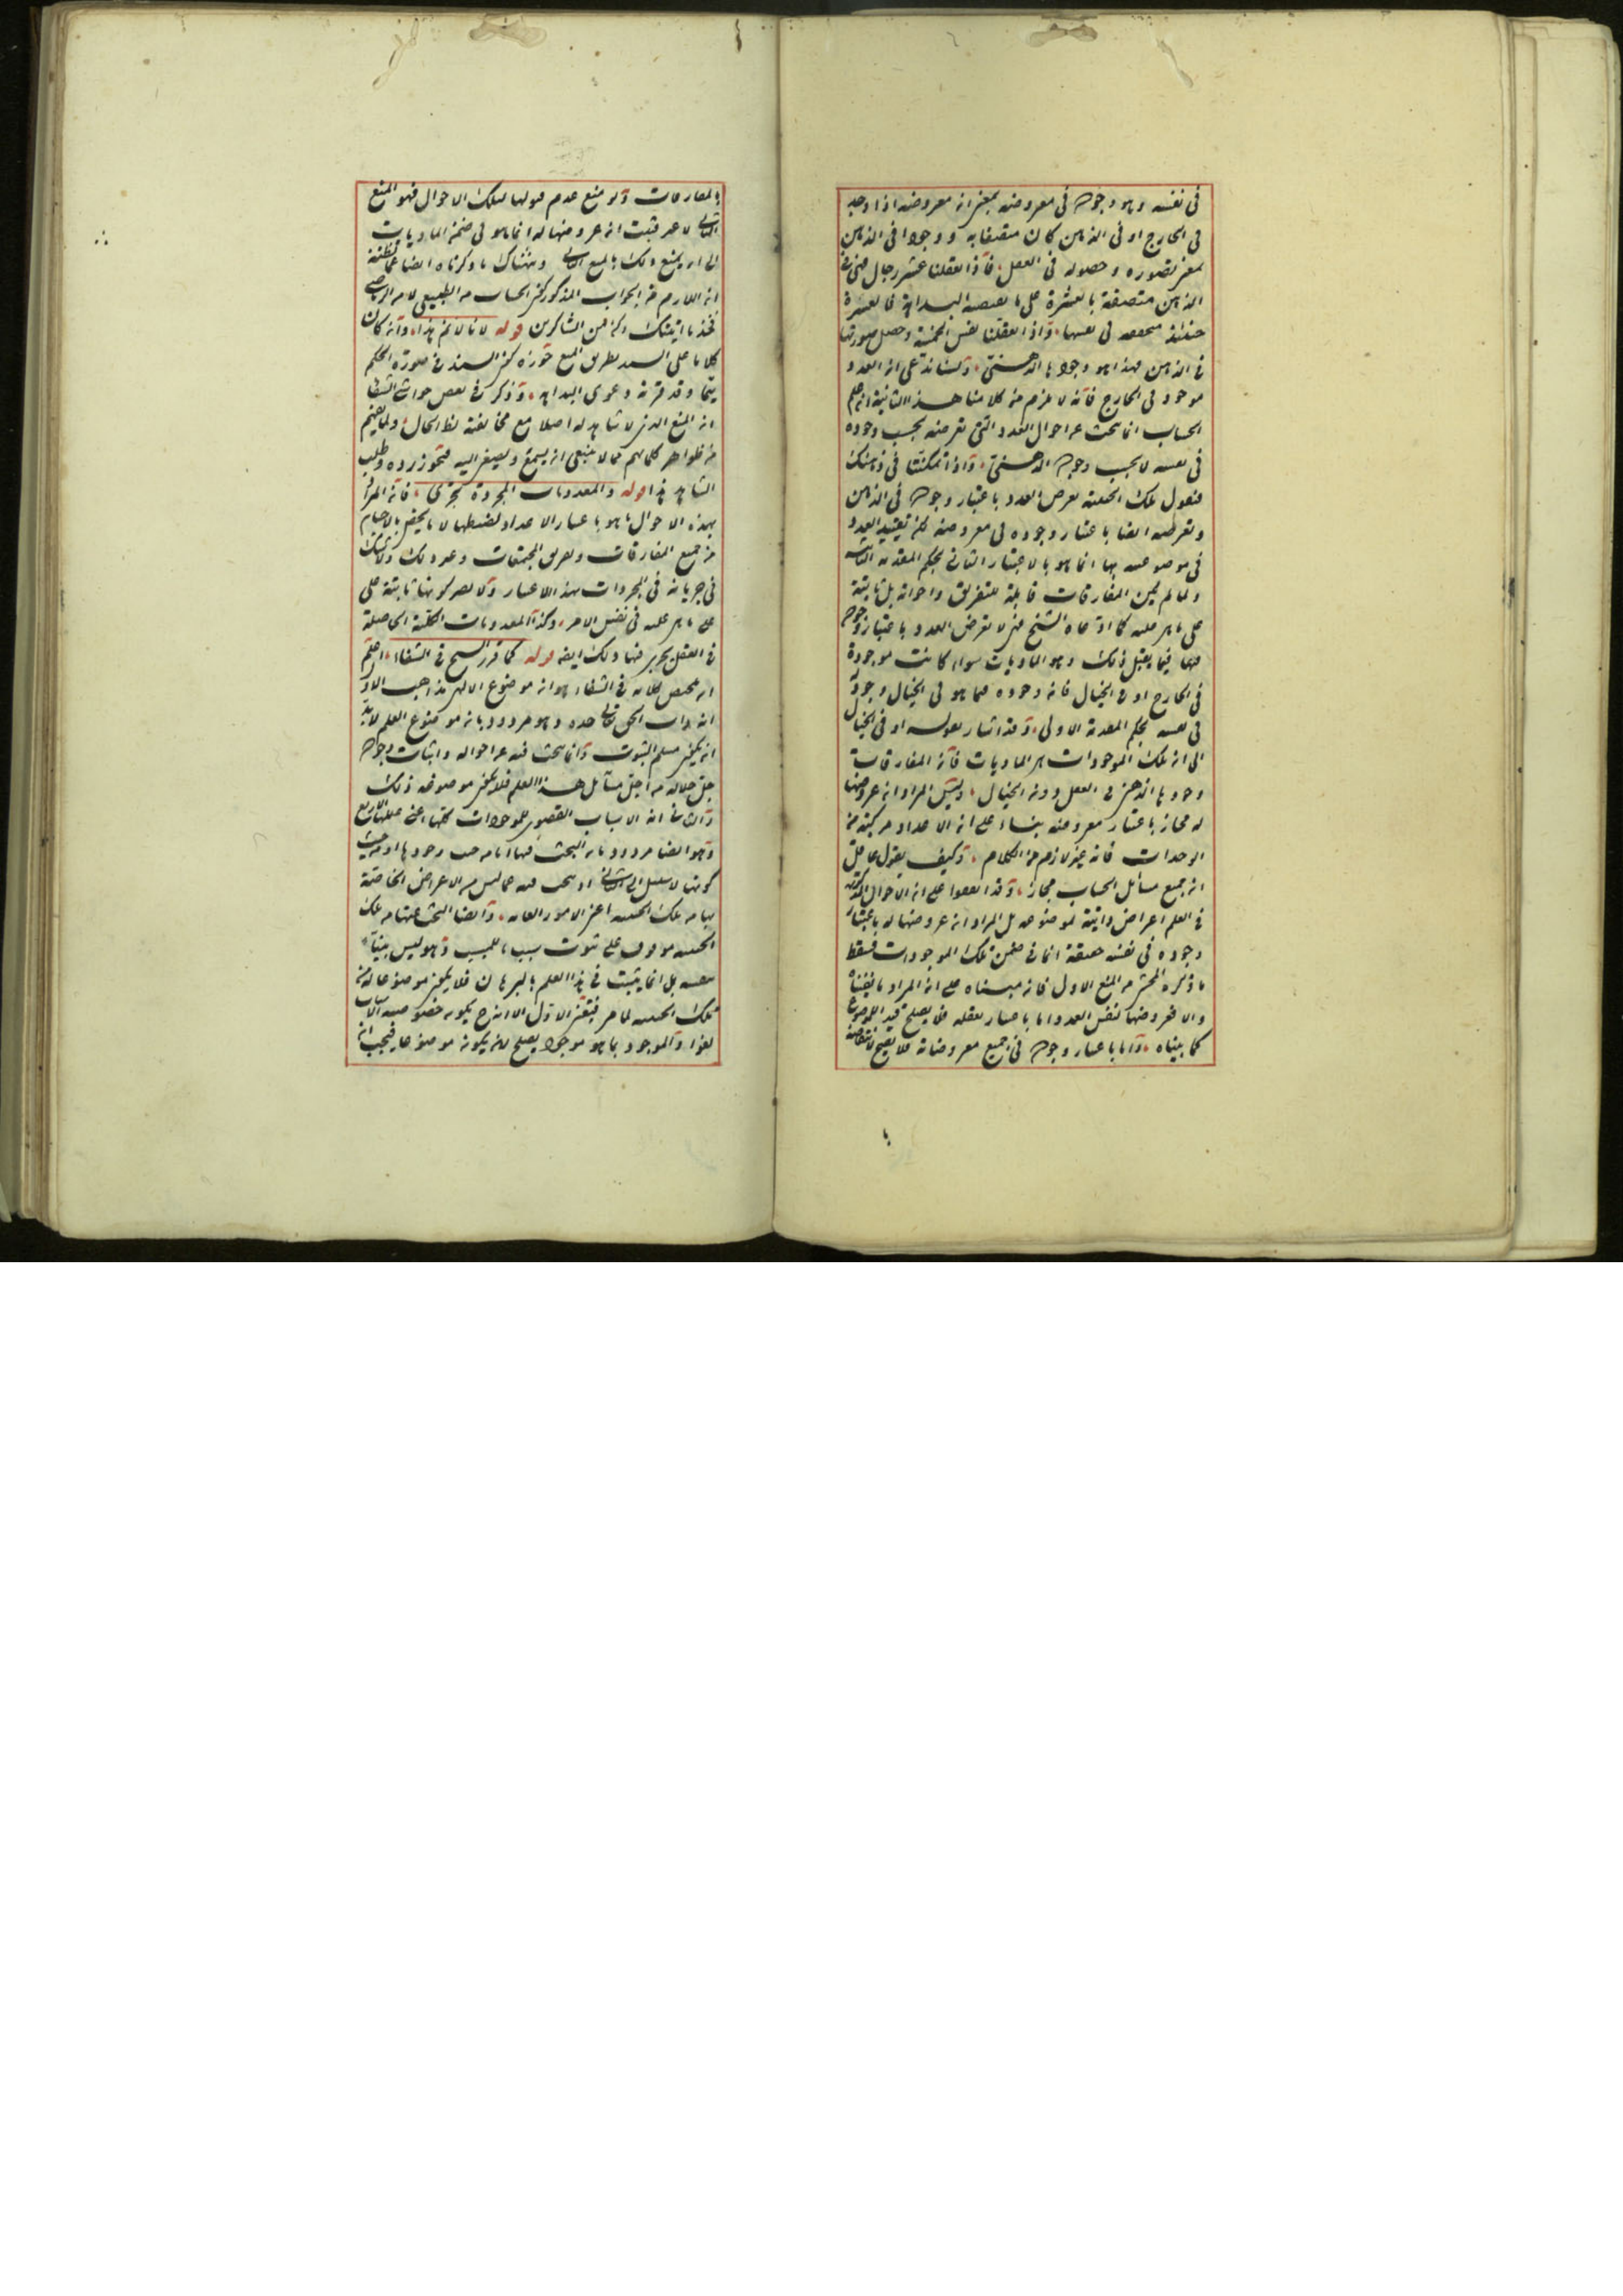 في نفسه وهو وجوده في معروضه بمعنى انه معروضه اذا وجد
في الخارج او في الذهن كان متصفا به ووجودا في الذهن
بمعنى تصوره وحصوله في العقل فاذا تعقلنا عشر رجال في
الذهن متصفة بالعشرة على ما يقتضيه البداهة فالعشرة
حينئذ متحققة في نفسها واذا تعقلنا نفس الخمسة وحصل صورتها
في الذهن فهذا هو وجودها الذهني على ان العدد
موجود في الخارج فانه لا يلزم من كلامنا هذا الثانية ان علم
الحساب انما يبحث عن احوال العدد التي تعرضه بحسب وجوده
في نفسه لا بحسب وجوده الذهني واذا تمكنتا في ذهنك
فنقول تلك الحيثية تعرض العدد باعتبار وجوده في الذهن
وتعرضه ايضا باعتبار وجوده في معروضه لكن تقييد العدد
في موضوعيته بها انما هو بالاعتبار الثاني بحكم المقدمة الثانية
ولما لم يكن المفارقات قابلة للتفريق واخواته بل ثابتة
على ما هي عليه كما ادعاه الشيخ لا تعرض العدد باعتبار وجوده
فيها فيما يقبل ذلك وهو الماديات سواء كانت موجودة
في الخارج او في الخيال فانه وجوده فيما هو في الخيال وجوده
في نفسه بحكم المقدمة الاولى وقد اشار بقوله او في الخيال
الى ان تلك الموجودات هي الماديات فان المفارقات
وجودها الذهني في العقل دون الخيال وليس المراد ان عروضها
له مجاز باعتبار معروضه بناء على ان الاعداد مركبة من
الوحدات فانه غير لازم من الكلام وكيف يقول عاقل
ان جميع مسائل الحساب مجاز وقد اتفقوا على ان الاحوال المذكورة
في العلم اعراض ذاتية لموضوعه بل المراد ان عروضها له باعتبار
وجوده في نفسه حقيقة انما في ضمن تلك الموجودات فسقط
ما ذكره المحشي من المنع الاول فانه مبناه على ان المراد ما
والا فعروضها لنفس العدد اما باعتبار تعقله فلا يصلح قيد الموضوع
كما بيناه واما باعتبار وجوده في جميع معروضاته فلا يصح
بالمفارقات ولو منع عدم قبولها لتلك الاحوال فهو المنع
الثاني لا غير فثبت ان عروضها له انما هو في ضمن الماديات
الى ان يمنع ذلك بالمنع الثاني وهناك ما ذكرناه ايضا
ان اللازم من الجواب المذكور كون الحساب من الطبيعي لا من الرياضي
فخذ ما اتيتك وكن من الشاكرين قوله لانا لا نم هذا وان كان
كلاما على السند بطريق المنع جوزه كون السند في صورة الحكم
وقد قرنه دعوى البداهة وذكر في بعض حواشي الشفا
ان المنع الذي لا شاهد له اصلا مع مخالفته لظ الحال ولما يفهم
من ظواهر كلماتهم مما لا ينبغي ان يسمع ويصغى اليه فتجوز رده وطلب
الشاهد هذا قوله والمعدودات المجردة تجري فان المراد
بهذه الاحوال ما هو باعتبار الاعداد لا ما يختص بالاجسام
من جميع المفارقات وتفريق المجتمعات وغير ذلك ولا شك
في جريانه في المجردات بهذا الاعتبار ولا يضر كونها ثابتة على
على ما هي عليه في نفس الامر وكذا المعدودات الكلية الحاصلة
في العقل يجري فيها ذلك ايضا قوله كما قرر الشيخ في الشفاء اعلم
ان ملخص كلامه في الشفاء هو ان موضوع الالهي مذاهب الاول
انه ذات الحق تعالى وحده وهو مردود بان موضوع العلم لا بد
ان يكون مسلم الثبوت وانما يبحث فيه عن احواله واثبات وجوده
جل جلاله من اجل مسائل هذا العلم فلا يكون موضوعه ذلك
والثاني انه الاسباب القصوى للموجودات كلها اعني عللها الاربع
وهو ايضا مردود بان البحث فيها اما من حيث وجودها او من حيث
كونها لا سبيل الى الثاني اذ يبحث فيه عما ليس من الاعراض الخاصة
بها من تلك الحيثية اعني الامور العامة وايضا البحث عنها من تلك
الحيثية موقوف على ثبوت سبب ما للمسبب وهو ليس بينا
بنفسه بل انما يثبت في هذا العلم بالبرهان فلا يكون موضوعا له من
تلك الحيثية لما مر فتعين الاول الا انه ح يكون خصوصية الاسباب
لغوا والموجود بما هو موجود يصلح لان يكون موضوعا فيجب ان